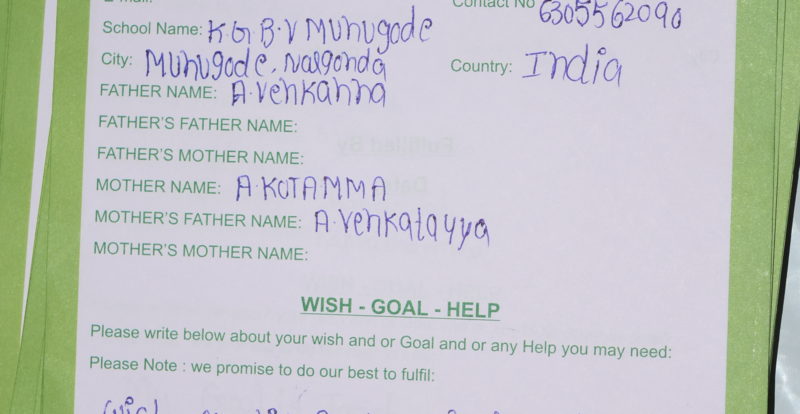 Contact No 6305562090
School Name: K.G.B.V Munugode
City: Munugode, Nalgonda Country: India
FATHER NAME: A.Venkanna
FATHER'S FATHER NAME:
FATHER'S MOTHER NAME:
MOTHER NAME: A.KOTAMMA
MOTHER'S FATHER NAME: A.Venkatayya
MOTHER'S MOTHER NAME:
WISH - GOAL - HELP
Please write below about your wish and or Goal and or any Help you may need:
Please Note : we promise to do our best to fulfil: